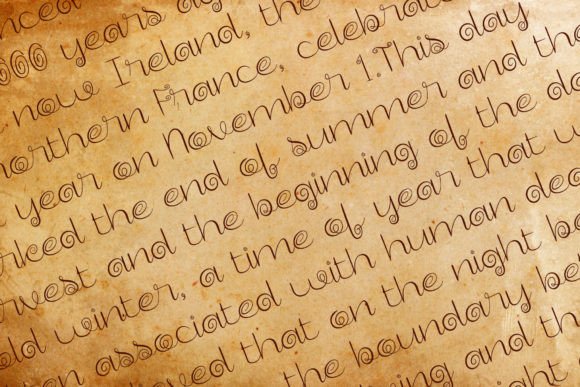 nced
000 years ago
now Ireland, the
northern France, celebrat
year on November 1.This day
rked the end of summer and the
rvest and the beginning of the da
old winter, a time of year that w
en associated with human dea
eved that on the night be
the boundary be
ing and th